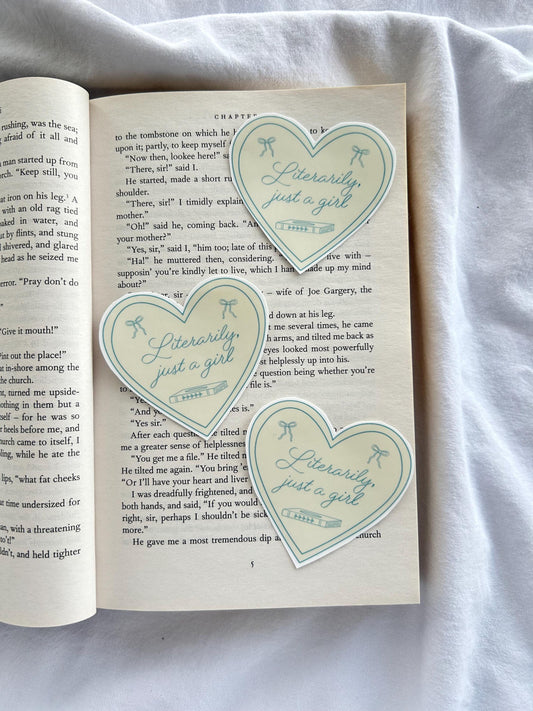 rushing, was the sea;
g afraid of it all and
man started up from
rch. "Keep still, you
at iron on his leg.³ A
with an old rag tied
oaked in water, and
ut by flints, and stung
shivered, and glared
head as he seized me
error. "Pray don't do
"Give it mouth!"
Pint out the place!"
at in-shore among the
the church.
nt, turned me upside-
nothing in them but a
self – for he was so
heels before me, and
urch came to itself, I
ling, while he ate the
lips, "what fat cheeks
time undersized for
an, with a threatening
to't!"
dn't, and held tighter
CHAPTER
to the tombstone on which he to keep
upon it; partly, to keep myself f
"Now then, lookee here!" said
"There, sir!" said I.
He started, made a short ru
shoulder.
"There, sir!" I timidly explain
mother."
"Oh!" said he, coming back. "A
your mother?"
"Yes, sir," said I, "him too; late of this
"Ha!" he muttered then, considering. live with –
supposin' you're kindly let to live, which I han't made up my mind
about?"
sir – wife of Joe Gargery, the
down at his leg.
me several times, he came
arms, and tilted me back as
eyes looked most powerfully
helplessly up into his.
e question being whether you're
file is."
"Ye
"And y
"Yes sir."
After each quest he tilted
me a greater sense of helplessness
"You get me a file." He tilted
He tilted me again. "You bring 'e
"Or I'll have your heart and liver
I was dreadfully frightened, and
both hands, and said, "If you would
right, sir, perhaps I shouldn't be sick
more."
He gave me a most tremendous dip church
5
Literarily,
just a girl
Literarily,
just a girl
Literarily,
just a girl